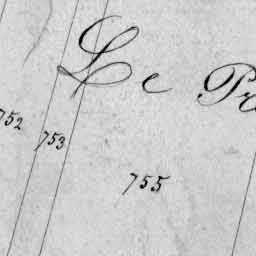 Le Pr
752
753
755